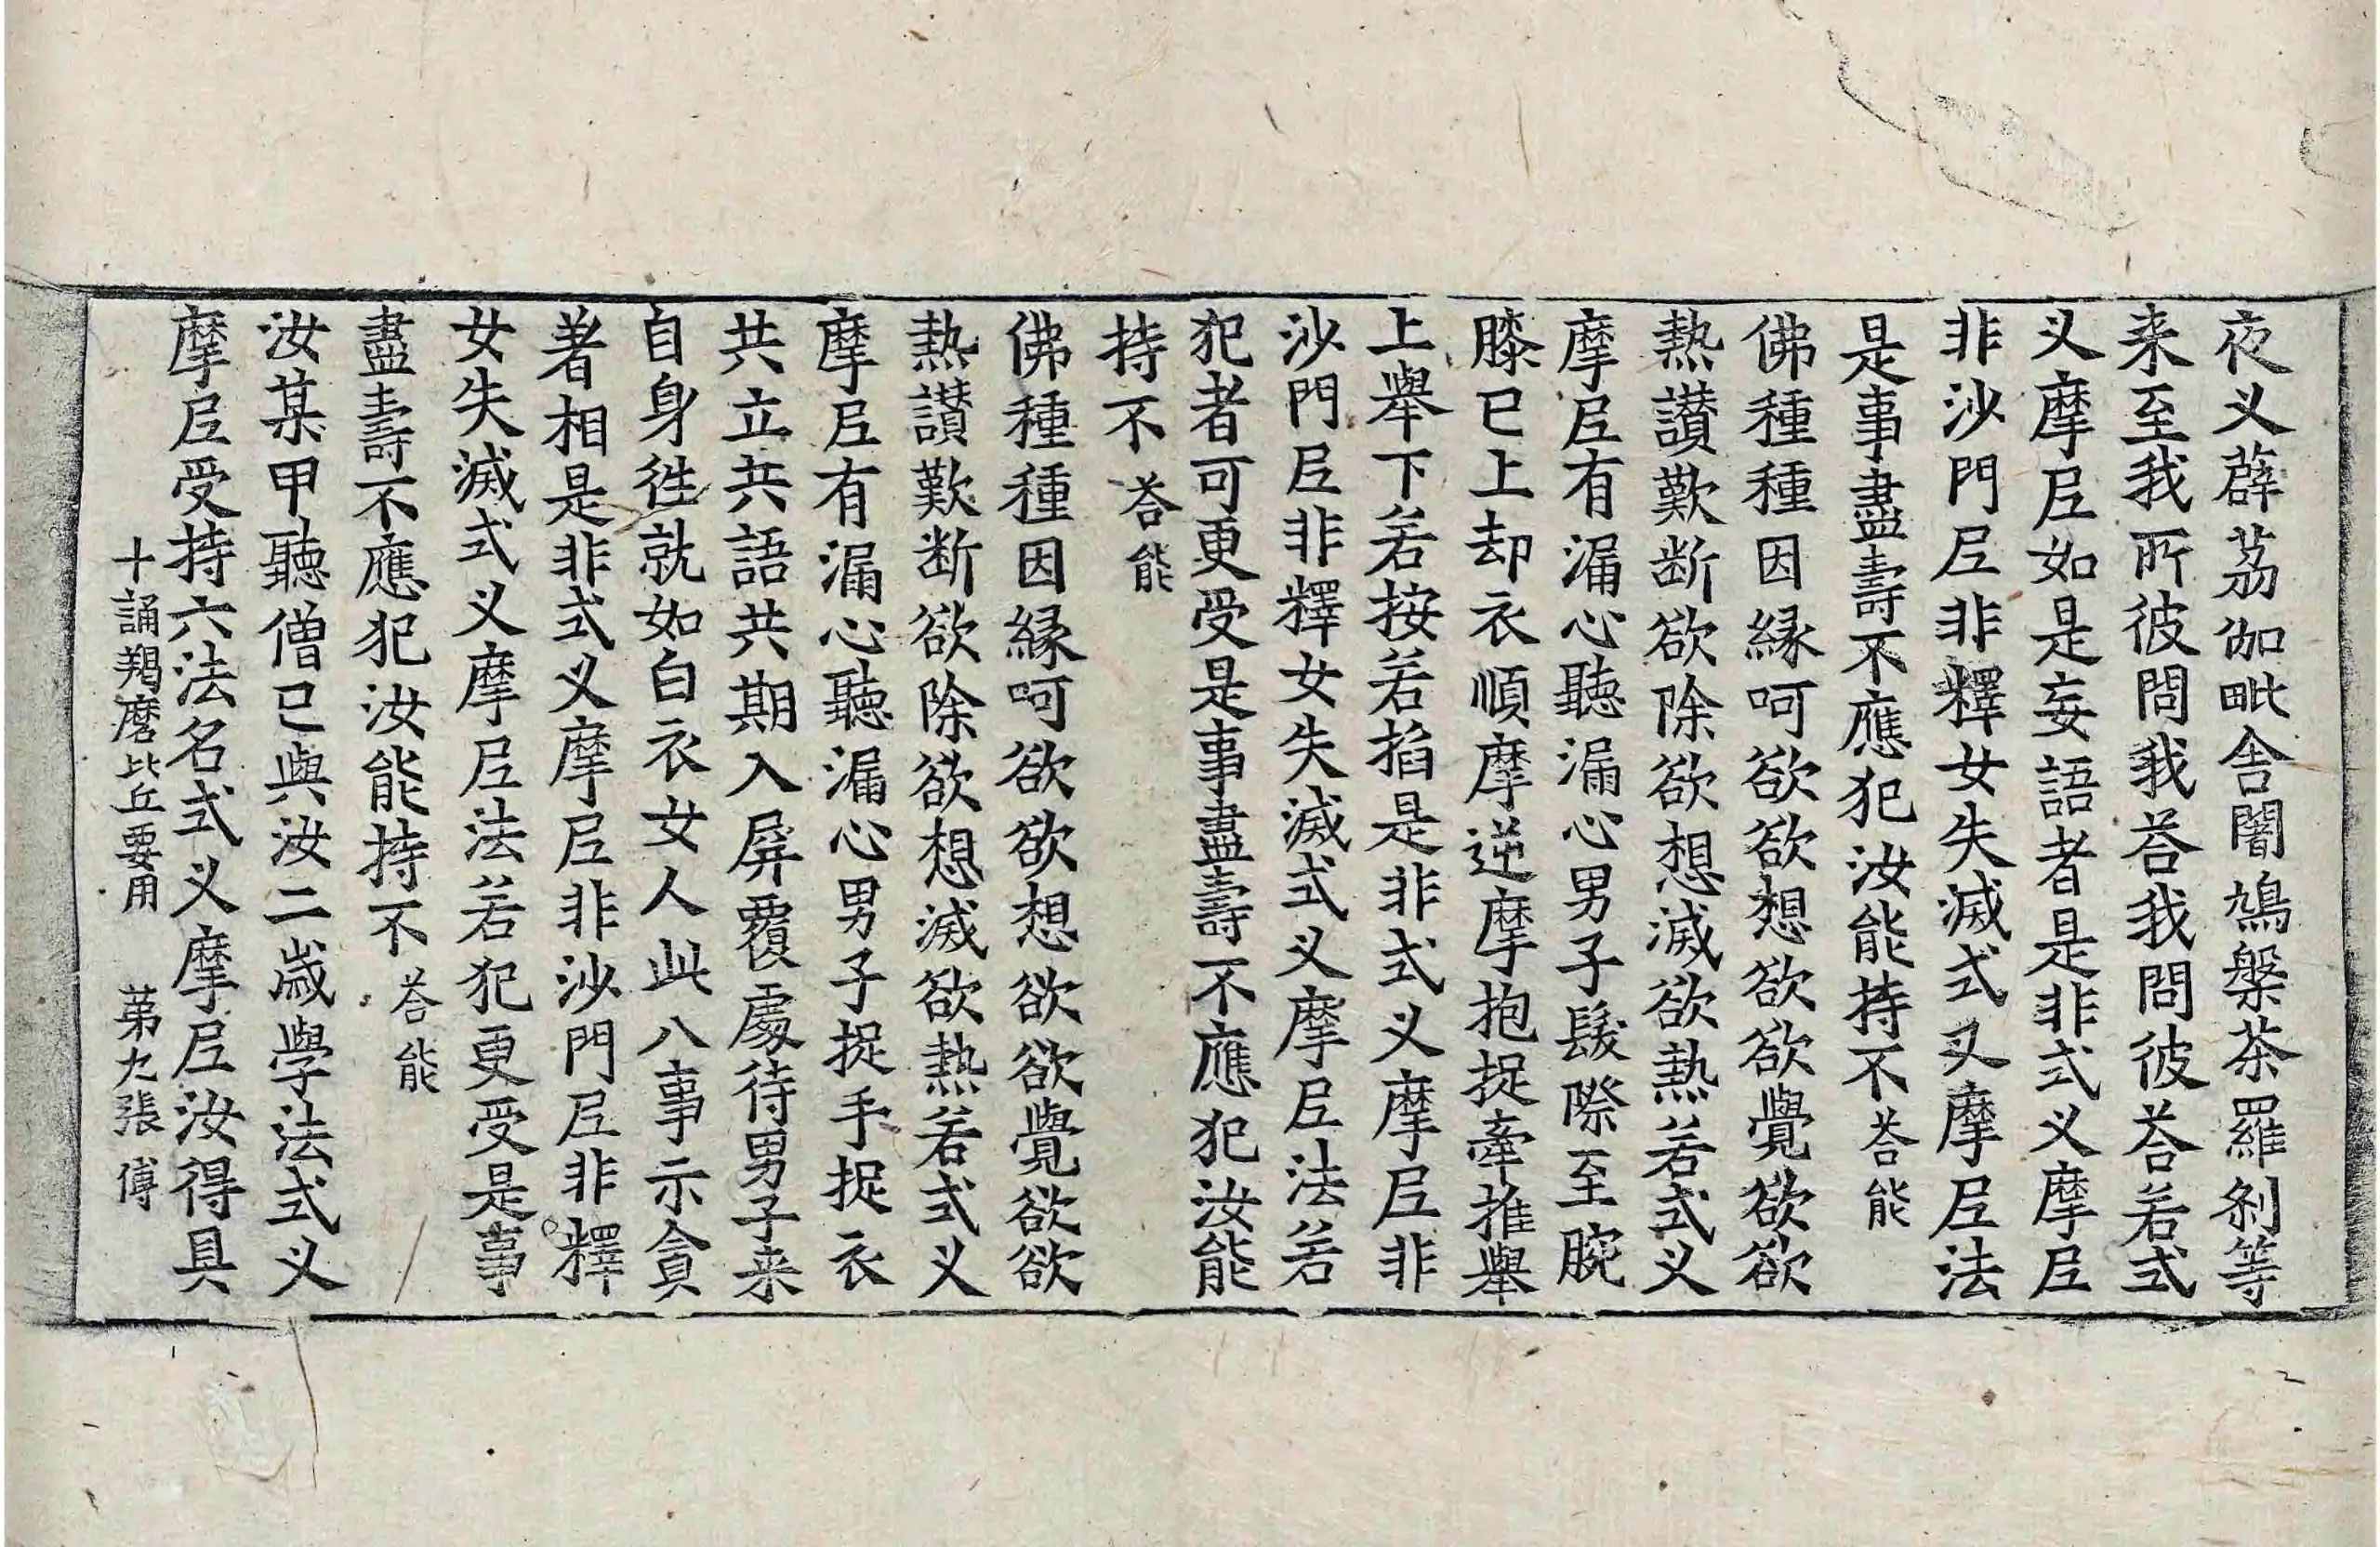 夜叉薜荔伽毗舍闍鳩槃茶羅刹等
来至我所彼問我荅我問彼荅若式
叉摩尼如是妄語者是非式叉摩尼
非沙門尼非釋女失滅式叉摩尼法
是事盡壽不應犯汝能持不荅能
佛種種因緣呵欲欲想欲欲覺欲欲
熱讃歎断欲除欲想滅欲熱若式叉
摩尼有漏心聽漏心男子髮際至腕
膝已上却衣順摩逆摩抱捉牽推舉
上舉下若按若掐是非式叉摩尼非
沙門尼非釋女失滅式叉摩尼法若
犯者可更受是事盡壽不應犯汝能
持不荅能
佛種種因緣呵欲欲想欲欲覺欲欲
熱讃歎断欲除欲想滅欲熱若式叉
摩尼有漏心聽漏心男子捉手捉衣
共立共語共期入屏覆處待男子来
自身徃就如白衣女人此八事示貪
著相是非式叉摩尼非沙門尼非釋
女失滅式叉摩尼法若犯更受是事
盡壽不應犯汝能持不荅能
汝某甲聽僧已與汝二歲學法式叉
摩尼受持六法名式叉摩尼汝得具
十誦羯磨比丘要用 第九張 傅